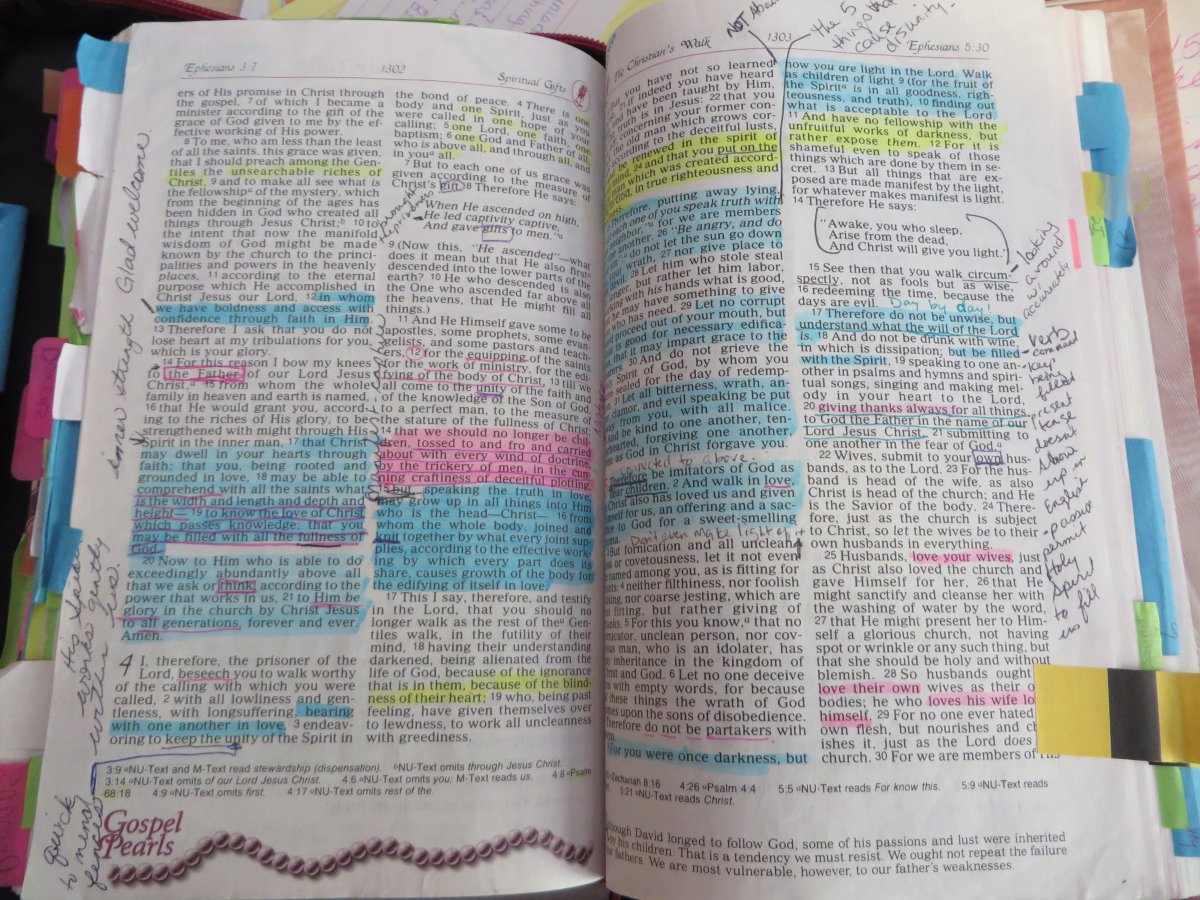 Ephesians 3:7
1302
Spiritual Gifts
ers of His promise in Christ through
the gospel, 7 of which I became a
minister according to the gift of the
grace of God given to me by the ef-
fective working of His power.
8 To me, who am less than the least
of all the saints, this grace was given,
that I should preach among the Gen-
tiles the unsearchable riches of
Christ, 9 and to make all see what is
the fellowship of the mystery, which
from the beginning of the ages has
been hidden in God who created all
things through Jesus Christ; 10 to
the intent that now the manifold
wisdom of God might be made
known by the church to the princi-
palities and powers in the heavenly
places, 11 according to the eternal
purpose which He accomplished in
Christ Jesus our Lord, 12 in whom
we have boldness and access with
confidence through faith in Him.
13 Therefore I ask that you do not
lose heart at my tribulations for you,
which is your glory.
14 For this reason I bow my knees
to the Father of our Lord Jesus
Christ, 15 from whom the whole
family in heaven and earth is named,
16 that He would grant you, accord-
ing to the riches of His glory, to be
strengthened with might through His
Spirit in the inner man, 17 that Christ
may dwell in your hearts through
faith; that you, being rooted and
grounded in love, 18 may be able to
comprehend with all the saints what
is the width and length and depth and
height— 19 to know the love of Christ
which passes knowledge; that you
may be filled with all the fullness of
God.
20 Now to Him who is able to do
exceedingly abundantly above all
that we ask or think, according to the
power that works in us, 21 to Him be
glory in the church by Christ Jesus
to all generations, forever and ever.
Amen.
4 I, therefore, the prisoner of the
Lord, beseech you to walk worthy
of the calling with which you were
called, 2 with all lowliness and gen-
tleness, with longsuffering, bearing
with one another in love, 3 endeav-
oring to keep the unity of the Spirit in
the bond of peace. 4 There is one
body and one Spirit, just as you
were called in one hope of your
calling; 5 one Lord, one faith, one
baptism; 6 one God and Father of all,
who is above all, and through all, and
in you all.
7 But to each one of us grace was
given according to the measure of
Christ's gift. 8 Therefore He says:
"When He ascended on high,
He led captivity captive,
And gave gifts to men."
9 (Now this, "He ascended"—what
does it mean but that He also first
descended into the lower parts of the
earth? 10 He who descended is also
the One who ascended far above all
the heavens, that He might fill all
things.)
11 And He Himself gave some to be
apostles, some prophets, some evan-
gelists, and some pastors and teach-
ers, 12 for the equipping of the saints
for the work of ministry, for the edi-
fying of the body of Christ, 13 till we
all come to the unity of the faith and
of the knowledge of the Son of God,
to a perfect man, to the measure of
the stature of the fullness of Christ;
14 that we should no longer be chil-
dren, tossed to and fro and carried
about with every wind of doctrine,
by the trickery of men, in the cun-
ning craftiness of deceitful plotting,
15 but, speaking the truth in love,
may grow up in all things into Him
who is the head—Christ— 16 from
whom the whole body, joined and
knit together by what every joint sup-
plies, according to the effective work-
ing by which every part does its
share, causes growth of the body for
the edifying of itself in love.
17 This I say, therefore, and testify
in the Lord, that you should no
longer walk as the rest of the Gen-
tiles walk, in the futility of their
mind, 18 having their understanding
darkened, being alienated from the
life of God, because of the ignorance
that is in them, because of the blind-
ness of their heart; 19 who, being past
feeling, have given themselves over
to lewdness, to work all uncleanness
with greediness.
3:9 NU-Text and M-Text read stewardship (dispensation). NU-Text omits through Jesus Christ.
3:14 NU-Text omits of our Lord Jesus Christ. 4:6 NU-Text omits you; M-Text reads us. 4:8 Psalm
68:18 4:9 NU-Text omits first. 4:17 NU-Text omits rest of the.
Gospel
Pearls
inner strength Glad welcome
His Spirit works gently
w/ then us.
quick to mind
The Christian's Walk
1303
Ephesians 5:30
NOT
the 5 things that cause disunity.
you have not so learned
if indeed you have heard
have been taught by Him,
truth is in Jesus: 22 that you
concerning your former con-
the old man which grows cor-
according to the deceitful lusts,
be renewed in the spirit of
mind, 24 and that you put on the
man which was created accord-
God, in true righteousness and
Therefore, putting away lying,
each one of you speak truth with
neighbor," for we are members
another. 26 "Be angry, and do
": do not let the sun go down
your wrath, 27 nor give place to
devil. 28 Let him who stole steal
longer, but rather let him labor,
working with his hands what is good,
he may have something to give
who has need. 29 Let no corrupt
proceed out of your mouth, but
is good for necessary edifica-
that it may impart grace to the
30 And do not grieve the
Spirit of God, by whom you
sealed for the day of redemp-
31 Let all bitterness, wrath, an-
clamor, and evil speaking be put
away from you, with all malice.
And be kind to one another, ten-
derhearted, forgiving one another
as God in Christ forgave you.
Connected to above.
Therefore be imitators of God as
dear children. 2 And walk in love,
Christ also has loved us and given
Himself for us, an offering and a sac-
to God for a sweet-smelling
Don't even make light of it
But fornication and all unclean-
or covetousness, let it not even
named among you, as is fitting for
4 neither filthiness, nor foolish
talking, nor coarse jesting, which are
fitting, but rather giving of
thanks. 5 For this you know, that no
fornicator, unclean person, nor cov-
man, who is an idolater, has
any inheritance in the kingdom of
Christ and God. 6 Let no one deceive
you with empty words, for because
these things the wrath of God
comes upon the sons of disobedience.
Therefore do not be partakers with
For you were once darkness, but
now you are light in the Lord. Walk
as children of light 9 (for the fruit of
the Spirit is in all goodness, righ-
teousness, and truth), 10 finding out
what is acceptable to the Lord.
11 And have no fellowship with the
unfruitful works of darkness, but
rather expose them. 12 For it is
shameful even to speak of those
things which are done by them in se-
cret. 13 But all things that are ex-
posed are made manifest by the light,
for whatever makes manifest is light.
14 Therefore He says:
"Awake, you who sleep,
Arise from the dead,
And Christ will give you light."
15 See then that you walk circum-
spectly, not as fools but as wise,
16 redeeming the time, because the
days are evil. Day by day!
17 Therefore do not be unwise, but
understand what the will of the Lord
is. 18 And do not be drunk with wine,
in which is dissipation; but be filled
with the Spirit, 19 speaking to one an-
other in psalms and hymns and spiri-
tual songs, singing and making mel-
ody in your heart to the Lord,
20 giving thanks always for all things
to God the Father in the name of our
Lord Jesus Christ, 21 submitting to
one another in the fear of God.
22 Wives, submit to your own hus-
bands, as to the Lord. 23 For the hus-
band is head of the wife, as also
Christ is head of the church; and He
is the Savior of the body. 24 There-
fore, just as the church is subject
to Christ, so let the wives be to their
own husbands in everything.
25 Husbands, love your wives, just
as Christ also loved the church and
gave Himself for her, 26 that He
might sanctify and cleanse her with
the washing of water by the word,
27 that He might present her to Him-
self a glorious church, not having
spot or wrinkle or any such thing, but
that she should be holy and without
blemish. 28 So husbands ought
love their own wives as their o
bodies; he who loves his wife lo
himself. 29 For no one ever hated
own flesh, but nourishes and ch
ishes it, just as the Lord does
church. 30 For we are members of His
looking around w/ accurately
verb
command
key
being filled
present tense
doesn't show up in English
passive
permit Holy Spirit to fill us
Zechariah 8:16 4:26 Psalm 4:4 5:5 NU-Text reads For know this. 5:9 NU-Text reads
5:21 NU-Text reads Christ.
though David longed to follow God, some of his passions and lust were inherited
by his children. That is a tendency we must resist. We ought not repeat the failure
our fathers. We are most vulnerable, however, to our father's weaknesses.